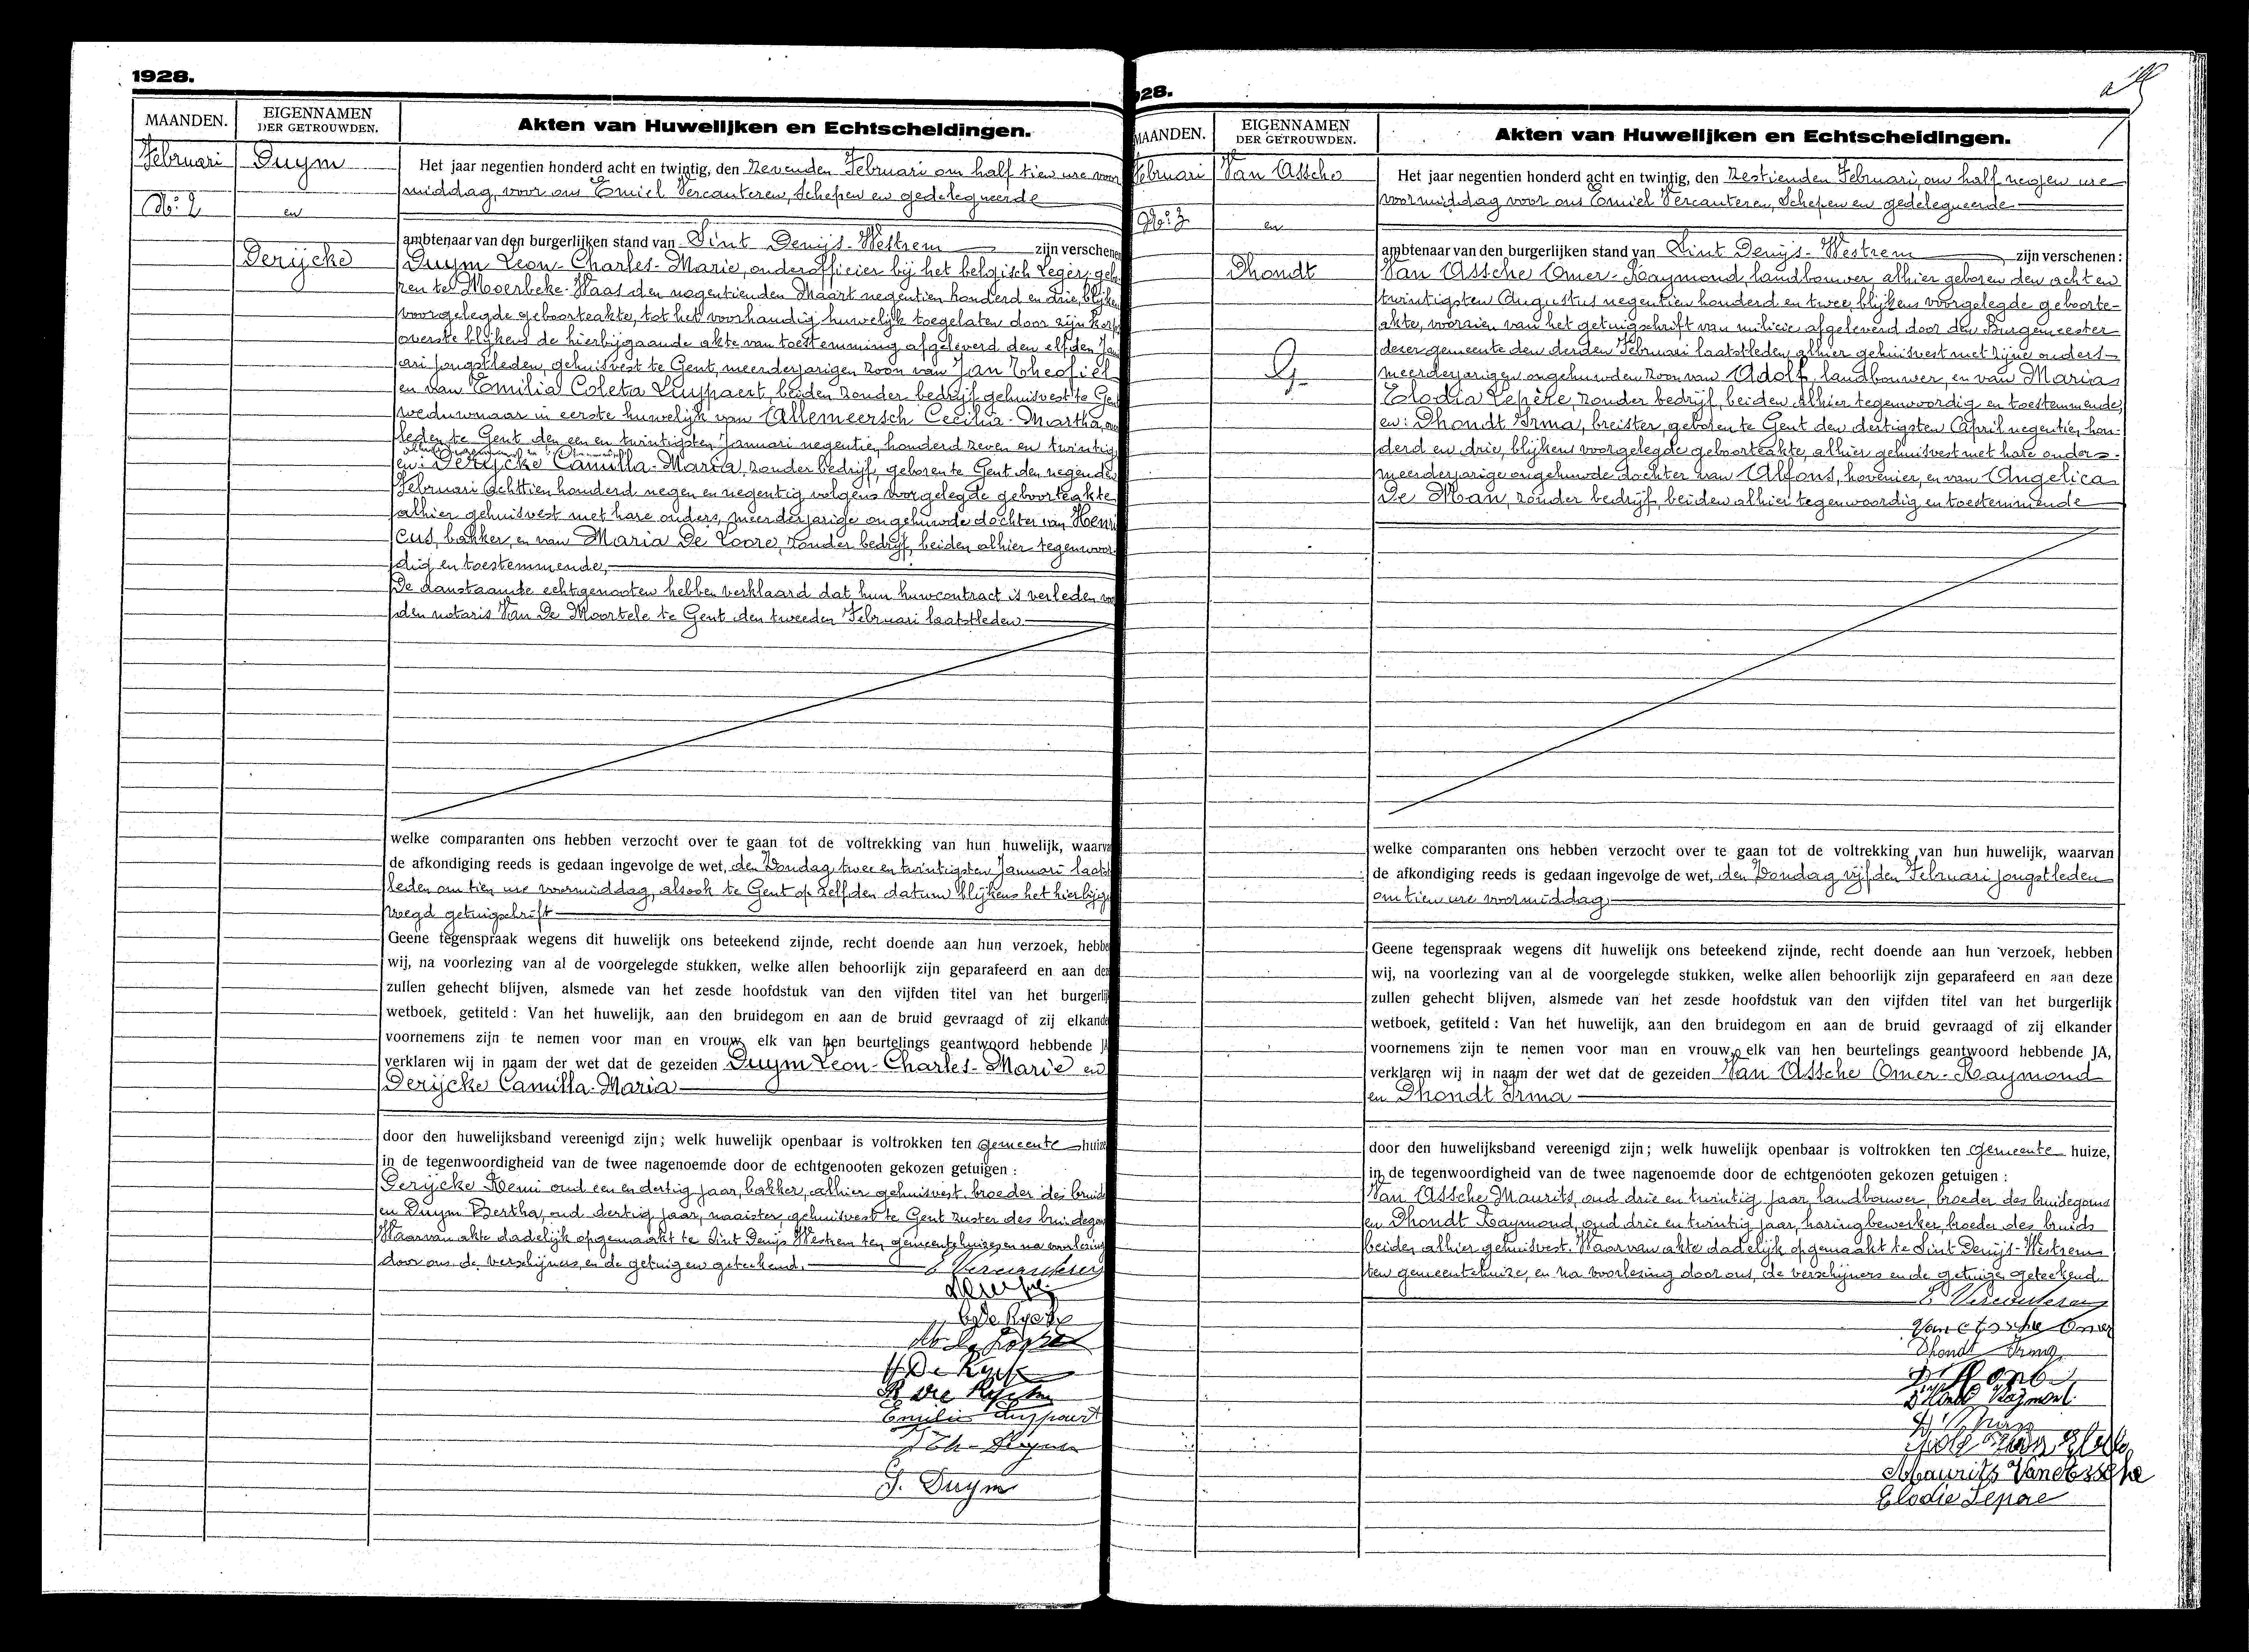 1928.
MAANDEN.
EIGENNAMEN
DER GETROUWDEN.
Akten van Huwelijken en Echtscheidingen.
Februari
No: 2
Duym
en
Derijcke
Het jaar negentien honderd acht en twintig, den zevenden Februari om half tien ure voor
middag, voor ons Emiel Vercauteren, Schepen en gedelegueerde
ambtenaar van den burgerlijken stand van Sint Denijs-Westrem zijn verschenen
Duym Leon-Charles-Marie, onderofficier bij het belgisch Leger, gebo
ren te Moerbeke-Waas den negentienden Maart negentien honderd en drie, blijkens
voorgelegde geboorteakte, tot het voorhandig huwelijk toegelaten door zijn Korps
overste blijkens de hierbijgaande akte van toestemming afgeleverd den elfden Janu
ari jongstleden, gehuisvest te Gent, meerderjarigen zoon van Jan Theofiel
en van Emilia Coleta Luypaert, beiden zonder bedrijf gehuisvest te Gent
weduwnaar in eerste huwelijk van Allemeersch Cecilia-Martha, over
leden te Gent den een en twintigsten Januari negentien honderd zeven en twintig
en: Derijcke Camilla-Maria, zonder bedrijf, geboren te Gent den negenden
Februari achttien honderd negen en negentig volgens voorgelegde geboorteakte
alhier gehuisvest met hare ouders, meerderjarige ongehuwde dochter van Henri
cus, bakker, en van Maria De Loore, zonder bedrijf, beiden alhier tegenwoor-
dig en toestemmende,
De aanstaande echtgenooten hebben verklaard dat hun huwcontract is verleden voor
den notaris Van De Moortele te Gent den tweeden Februari laatstleden
welke comparanten ons hebben verzocht over te gaan tot de voltrekking van hun huwelijk, waarva
de afkondiging reeds is gedaan ingevolge de wet, den Zondag twee en twintigsten Januari laatst
leden om tien ure voormiddag, alsook te Gent op zelfden datum blijkens het hierbijge
voegd getuigschrift
Geene tegenspraak wegens dit huwelijk ons beteekend zijnde, recht doende aan hun verzoek, hebbe
wij, na voorlezing van al de voorgelegde stukken, welke allen behoorlijk zijn geparafeerd en aan dez
zullen gehecht blijven, alsmede van het zesde hoofdstuk van den vijfden titel van het burgerlij
wetboek, getiteld: Van het huwelijk, aan den bruidegom en aan de bruid gevraagd of zij elkande
voornemens zijn te nemen voor man en vrouw, elk van hen beurtelings geantwoord hebbende JA
verklaren wij in naam der wet dat de gezeiden Duym Leon-Charles-Marie en
Derijcke Camilla-Maria
door den huwelijksband vereenigd zijn; welk huwelijk openbaar is voltrokken ten gemeente huize
in de tegenwoordigheid van de twee nagenoemde door de echtgenooten gekozen getuigen :
Derijcke Remi oud een en dertig jaar, bakker, alhier gehuisvest, broeder des bruids
en Duym Bertha, oud dertig jaar, naaister gehuisvest te Gent zuster des bruidegoms
Waarvan akte dadelijk opgemaakt te Sint Denijs Westrem ten gemeentehuize, en na voorlezing
door ons, de verschijners, en de getuigen geteekend.
E Vercauteren
C De Rycke
H De Ryck
R De Rycke
Emilie Luypaert
J Th- Duym
Duym
28.
MAANDEN.
EIGENNAMEN
DER GETROUWDEN.
Akten van Huwelijken en Echtscheidingen.
Februari
No: 3
Van Assche
en
Dhondt
Het jaar negentien honderd acht en twintig, den zestienden Februari, om half negen ure
voormiddag voor ons Emiel Vercauteren, Schepen en gedelegueerde
ambtenaar van den burgerlijken stand van Sint Denijs-Westrem, zijn verschenen:
Van Assche Omer-Raymond, landbouwer, alhier geboren den acht en
twintigsten Augustus negentien honderd en twee, blijkens voorgelegde geboorte-
akte, voorzien van het getuigschrift van milicie afgeleverd door den Burgemeester
dezer gemeente den derden Februari laatstleden, alhier gehuisvest met zijne ouders
meerderjarigen ongehuwden zoon van Adolf, landbouwer, en van Maria
Elodia Lepère, zonder bedrijf, beiden alhier tegenwoordig en toestemmende,
en: Dhondt Irma, breister, geboren te Gent den dertigsten April negentien hon-
derd en drie, blijkens voorgelegde geboorteakte, alhier gehuisvest met hare ouders
meerderjarige ongehuwde dochter van Alfons, hovenier, en van Angelica
De Man, zonder bedrijf, beiden alhier tegenwoordig en toestemmende
welke comparanten ons hebben verzocht over te gaan tot de voltrekking van hun huwelijk, waarvan
de afkondiging reeds is gedaan ingevolge de wet, den Zondag vijfden Februari jongstleden
om tien ure voormiddag
Geene tegenspraak wegens dit huwelijk ons beteekend zijnde, recht doende aan hun verzoek, hebben
wij, na voorlezing van al de voorgelegde stukken, welke allen behoorlijk zijn geparafeerd en aan deze
zullen gehecht blijven, alsmede van het zesde hoofdstuk van den vijfden titel van het burgerlijk
wetboek, getiteld: Van het huwelijk, aan den bruidegom en aan de bruid gevraagd of zij elkander
voornemens zijn te nemen voor man en vrouw, elk van hen beurtelings geantwoord hebbende JA,
verklaren wij in naam der wet dat de gezeiden Van Assche Omer-Raymond
en Dhondt Irma
door den huwelijksband vereenigd zijn; welk huwelijk openbaar is voltrokken ten gemeente huize,
in de tegenwoordigheid van de twee nagenoemde door de echtgenooten gekozen getuigen :
Van Assche Maurits, oud drie en twintig jaar, landbouwer, broeder des bruidegoms
en Dhondt Raymond, oud drie en twintig jaar, haringbewerker, broeder des bruids
beiden alhier gehuisvest. Waarvan akte dadelijk opgemaakt te Sint Denijs-Westrem
ten gemeentehuize, en na voorlezing door ons, de verschijners en de getuigen geteekend
E Vercauteren
Van Assche Omer
Dhondt Irma
D'Hondt
D'Hondt Raymond
Maurits Van Assche
Elodie Lepère